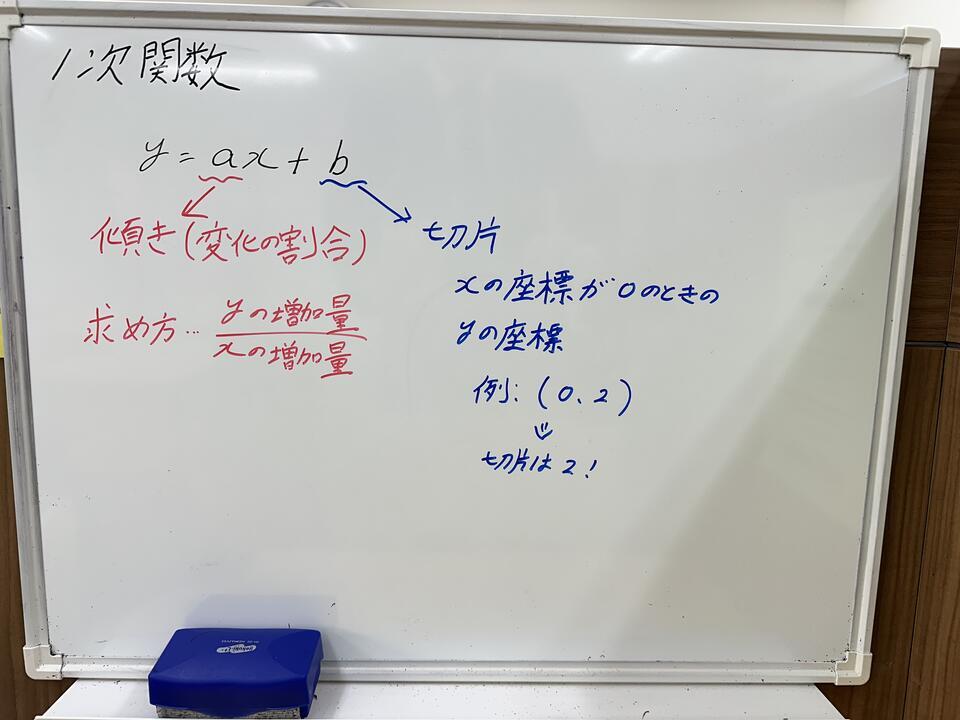 1次関数
y = ax + b
傾き(変化の割合)
求め方… yの増加量
xの増加量
切片
xの座標が0のときの
yの座標
例:(0、2)
切片は2!